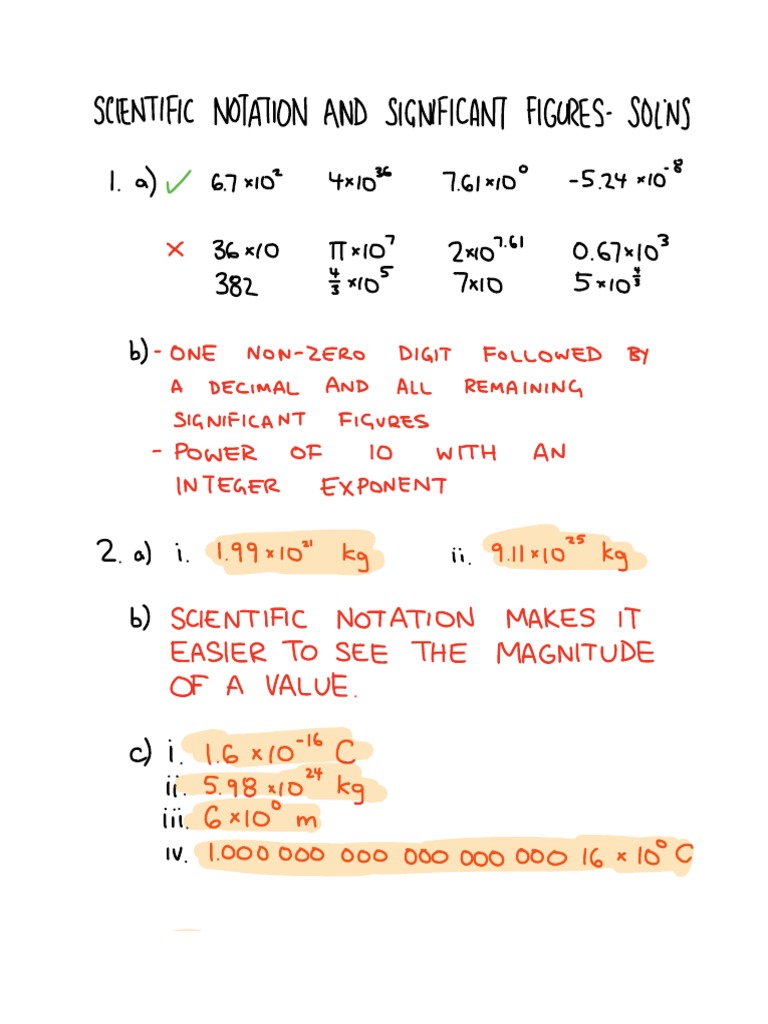 SCIENTIFIC NOTATION AND SIGNIFICANT FIGURES- SOL'NS
1. a) ✓ 6.7×10² 4×10³⁶ 7.61×10⁰ -5.24×10⁻⁸
× 36×10 π×10⁷ 2×10^7.61 0.67×10³
382 4/3×10⁵ 7×10 5×10^4/3
b) - ONE NON-ZERO DIGIT FOLLOWED BY
A DECIMAL AND ALL REMAINING
SIGNIFICANT FIGURES
- POWER OF 10 WITH AN
INTEGER EXPONENT
2. a) i. 1.99×10²¹ kg ii. 9.11×10²⁵ kg
b) SCIENTIFIC NOTATION MAKES IT
EASIER TO SEE THE MAGNITUDE
OF A VALUE.
c) i. 1.6×10⁻¹⁶ C
ii. 5.98×10²⁴ kg
iii. 6×10⁰ m
iv. 1.000 000 000 000 000 000 16 × 10⁰ C